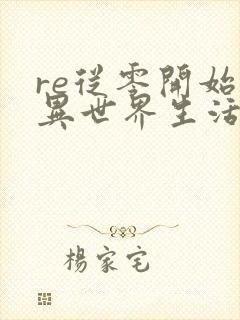 re從零開始
異世界生活
楊家宅